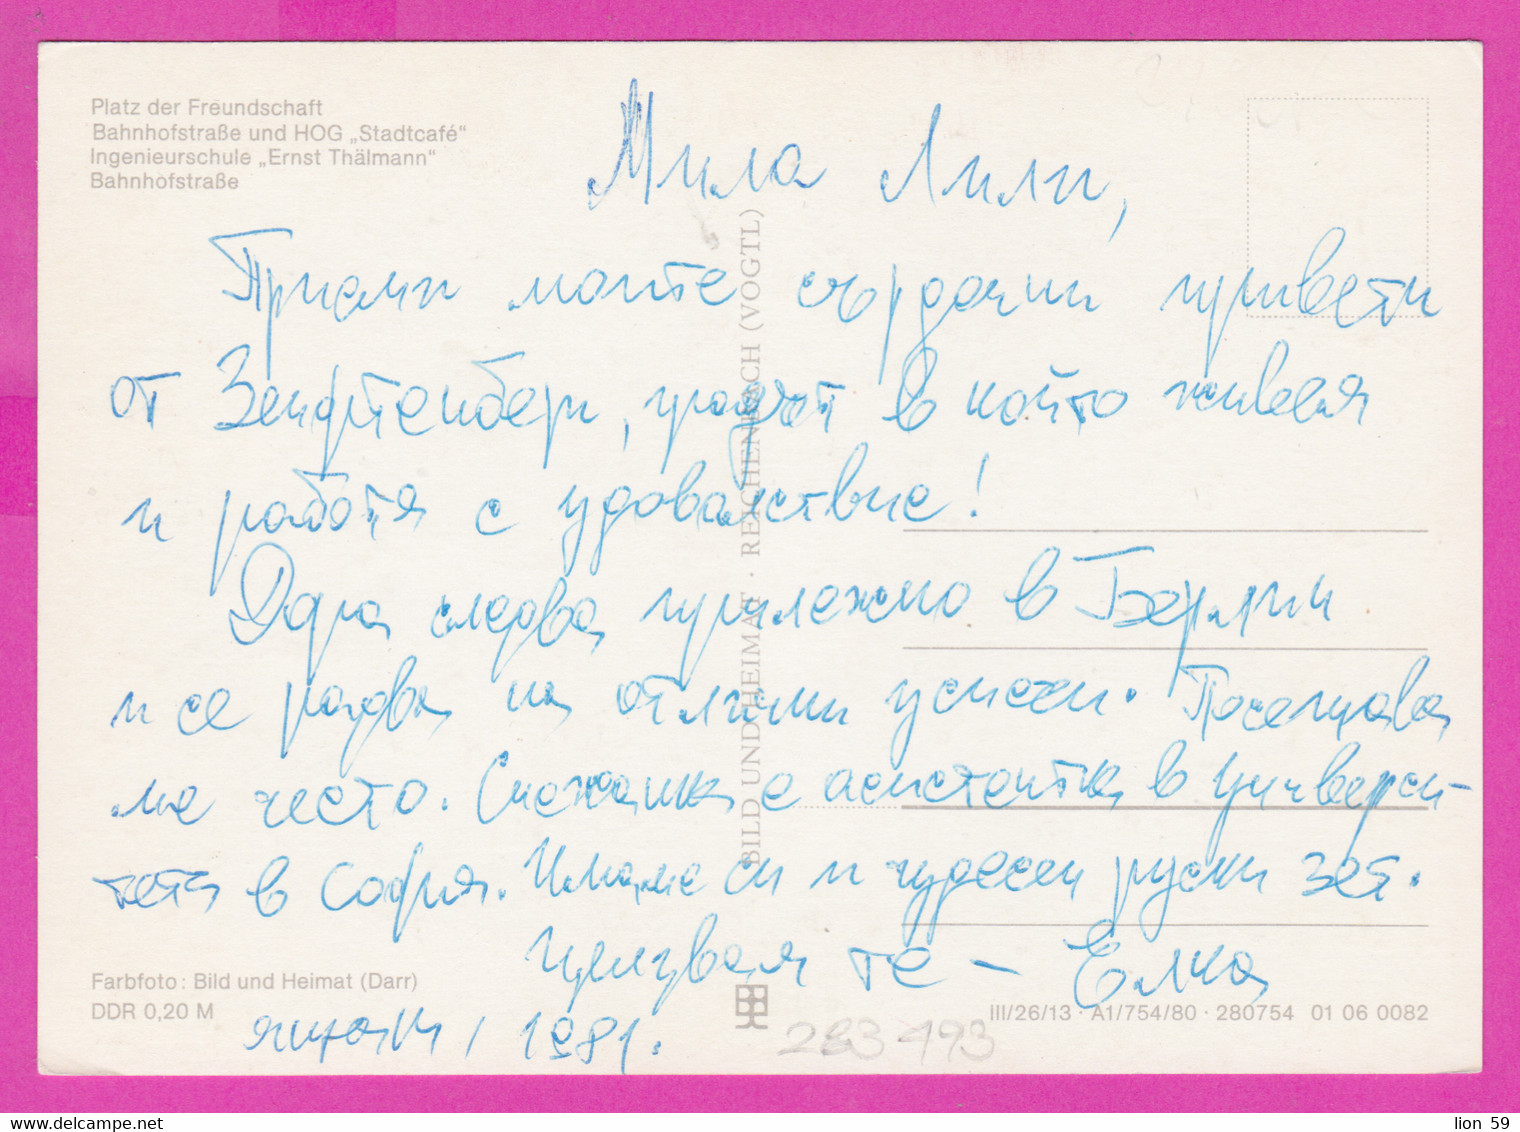 Platz der Freundschaft
Bahnhofstraße und HOG „Stadtcafé“
Ingenieurschule „Ernst Thälmann“
Bahnhofstraße
Мила Лили,
Приеми моите сърдечни привети
от Зенфтенберг, градът в който живея
и работя с удоволствие!
Дора следва прилежно в Берлин
и се радва на отлични успехи. Посещава
ме често. Снежанка е асистентка в универси-
тета в София. Имаме си и чудесен руски зет.
Целувам те – Елка
януари, 1981.
BILD UND HEIMAT · REICHENBACH (VOGTL)
Farbfoto: Bild und Heimat (Darr)
DDR 0,20 M
III/26/13 · A1/754/80 · 280754 01 06 0082
283493
lion 59